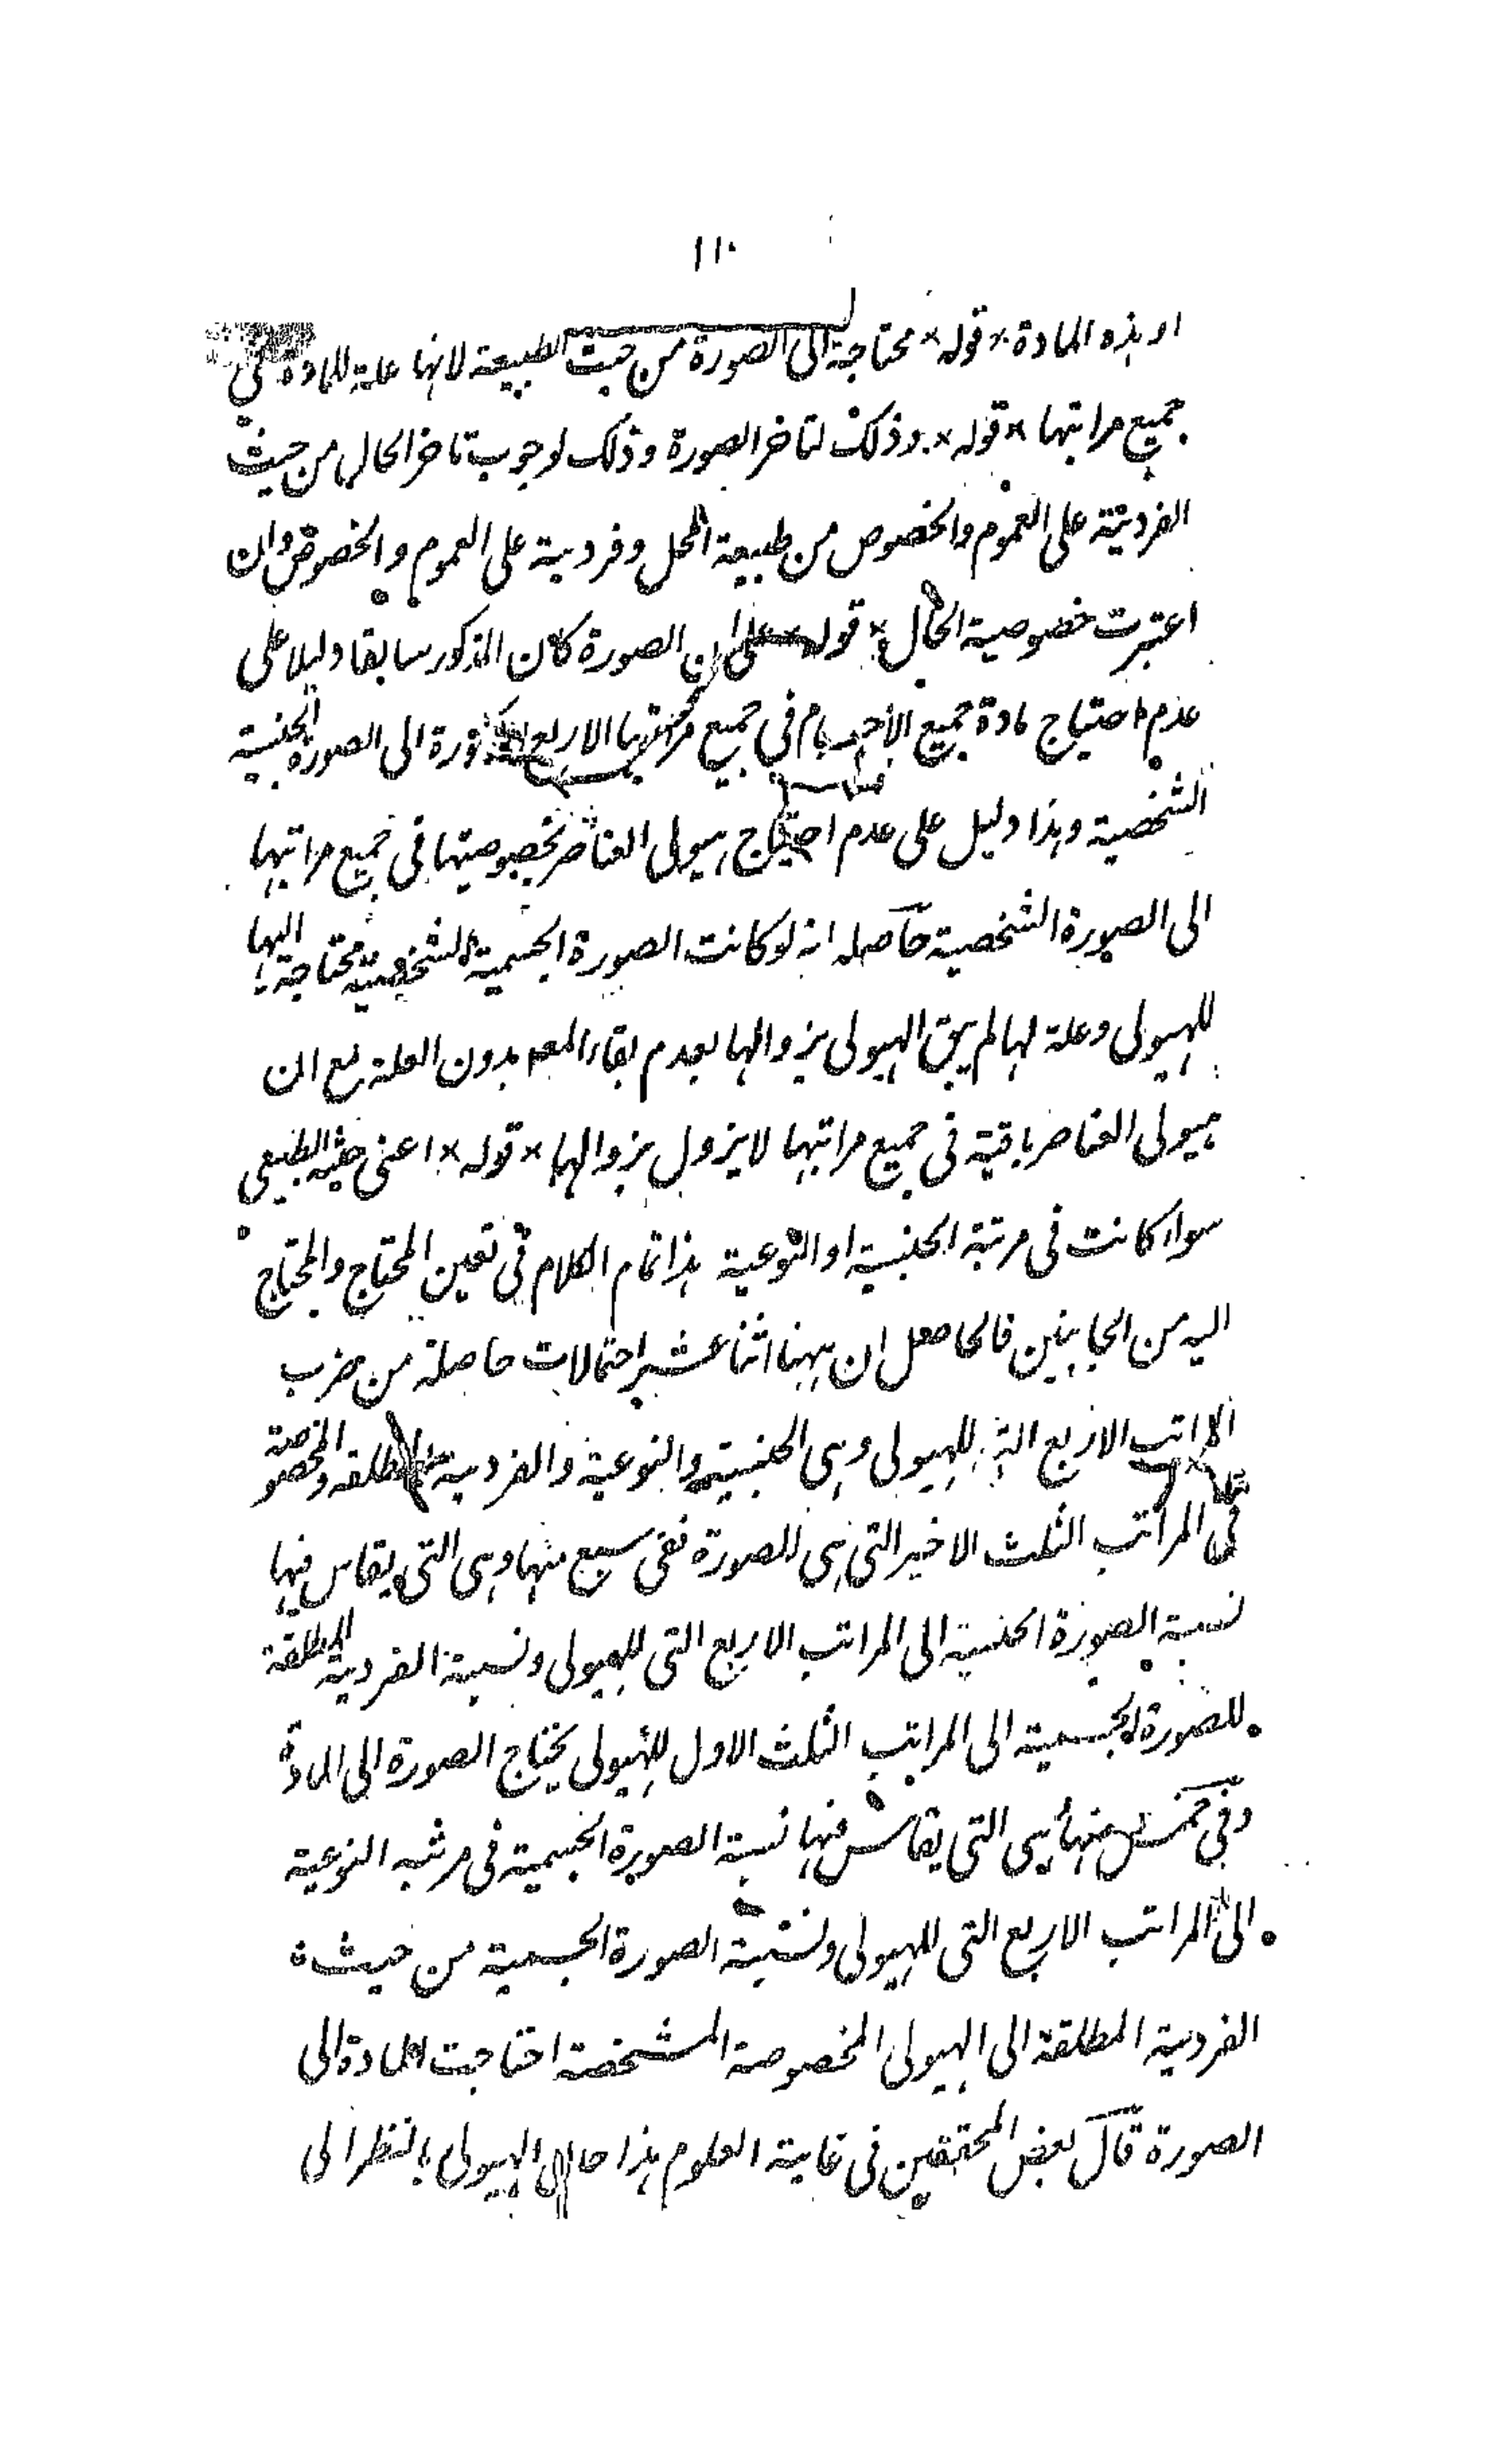 ١١٠
او هذه المادة * قوله * محتاجة الى الصورة من حيث الطبيعة لانها علة للمادة فى
جميع مراتبها * قوله * وذلك لتاخر الصورة وذلك لوجوب تاخر الحال من حيث
الفردية على العموم والخصوص من طبيعة المحل وفردية على العموم والخصوص وان
اعتبرت خصوصية الحال * قوله * على ان الصورة كان المذكور سابقا دليلا على
عدم احتياج مادة جميع الاجسام فى جميع مراتبها الاربع المذكورة الى الصورة الجنسية
الشخصية وهذا دليل على عدم احتياج هيولى العناصر بخصوصيتها فى جميع مراتبها
الى الصورة الشخصية حاصله انه لو كانت الصورة الجسمية الشخصية محتاجة اليها
للهيولى وعلة لها لم يبق الهيولى بزوالها لعدم بقاء المعـ بدون العلة مع ان
هيولى العناصر باقية فى جميع مراتبها لا يزول بزوالها * قوله * اعنى حيثه الطبيعى
سواء كانت فى مرتبة الجنسية او النوعية هذا تمام الكلام فى تعين المحتاج والمحتاج
اليه من الجانبين فالحاصل ان ههنا اثنا عشر احتمالات حاصلة من ضرب
المراتب الاربع التى للهيولى وهى الجنسية والنوعية والفردية المطلقة والمخصوصة
فى المراتب الثلث الاخير التى هى للصورة ففى سبع منها وهى التى يقاس فيها
نسبة الصورة الجنسية الى المراتب الاربع التى للهيولى ونسبة الفردية المطلقة
للصورة الجسمية الى المراتب الثلث الاول للهيولى يحتاج الصورة الى المادة
وفى خمس منها هى التى يقاس فيها نسبة الصورة الجسمية فى مرتبه النوعية
الى المراتب الاربع التى للهيولى ونسبة الصورة الجسمية من حيث
الفردية المطلقة الى الهيولى المخصوصة المشخصة احتاجت المادة الى
الصورة قال بعض المحققين فى غاية العلوم هذا حال الهيولى بالنظر الى